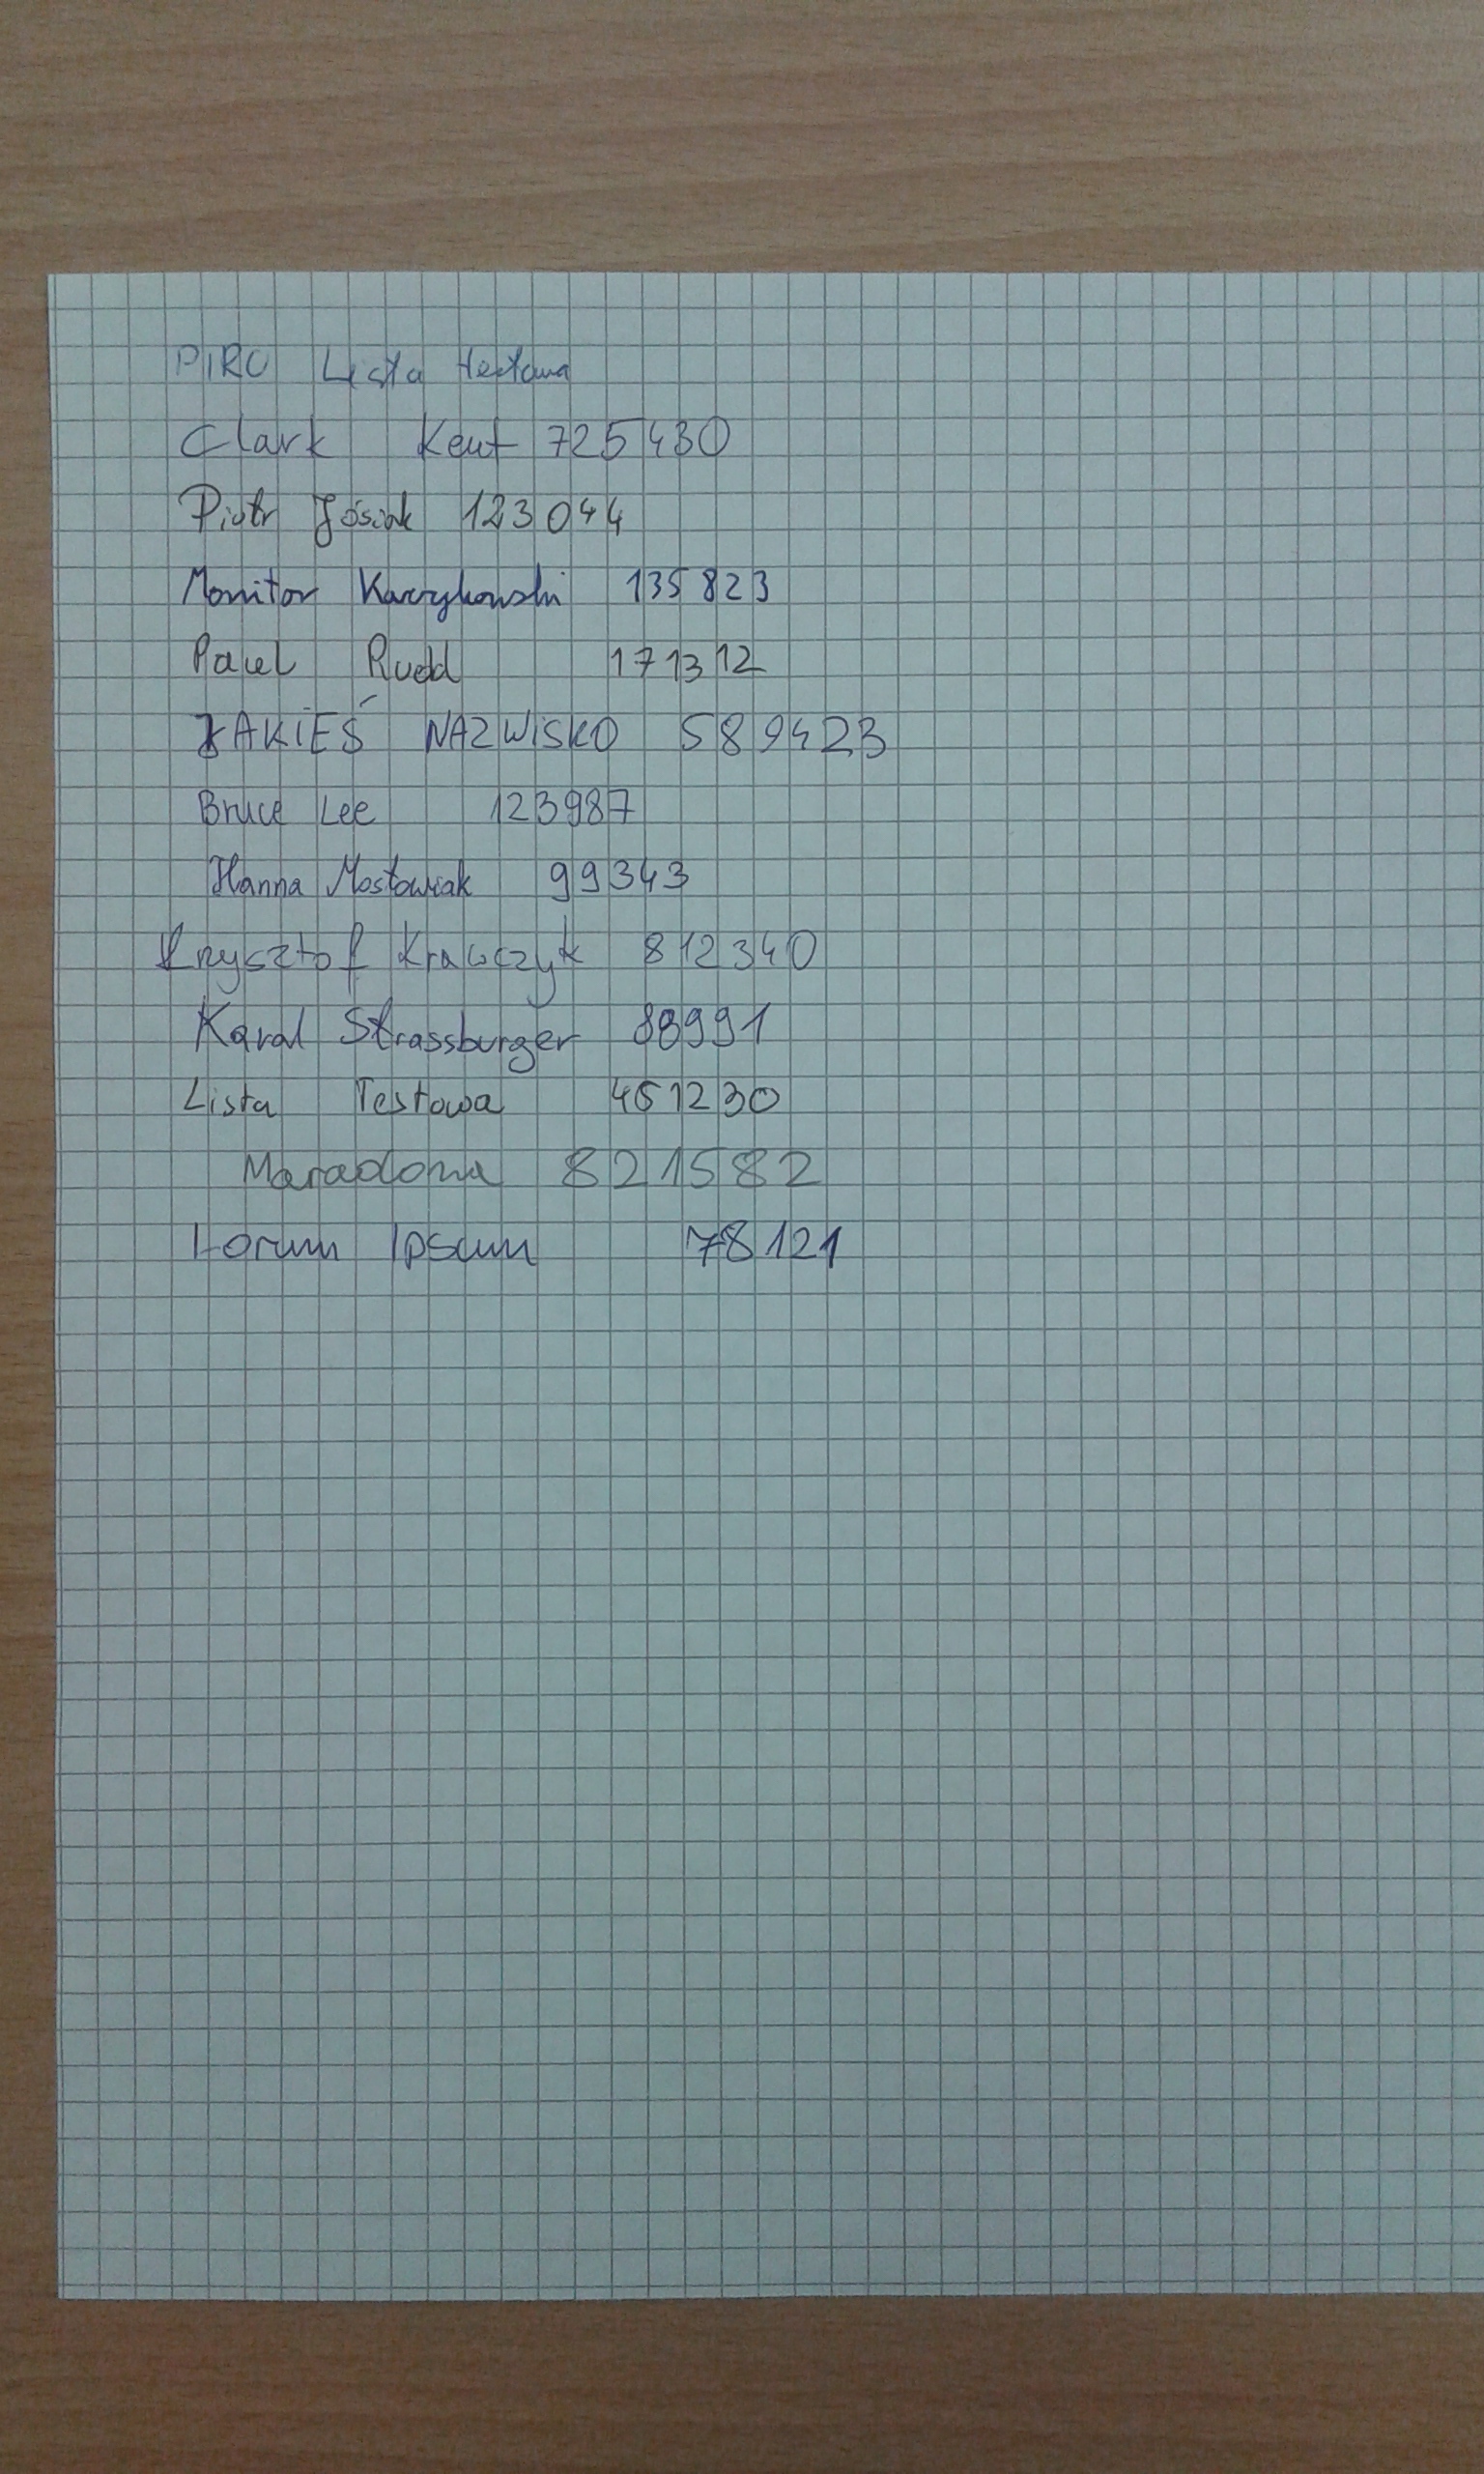 PIRO Lista testowa
Clark Kent 725430
Piotr Jósiak 123044
Monitor 135823
Paul Rudd 171312
JAKIEŚ NAZWISKO 589423
Bruce Lee 123987
Hanna Mostowiak 99343
Krzysztof Krawczyk 812340
Karol Strassburger 88991
Lista Testowa 451230
Maradona 821582
Lorum Ipsum 78121